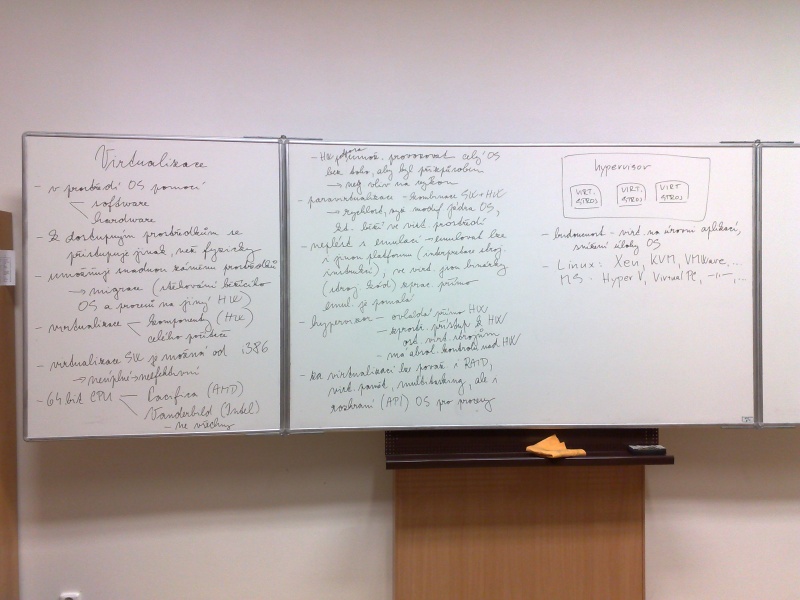 Virtualizace
- v prostředí OS pomocí
software
hardware
- k dostupným prostředkům se
přistupuje jinak, než fyzicky
- umožňují snadnou záměnu prostředků
→ migrace (stěhování běžícího
OS a procesů na jiný HW)
- virtualizace
komponenty (HW)
celého počítače
- virtualizace SW je možná od .386
→ neúplné → neefektivní
- 64 bit CPU
Pacifica (AMD)
Vanderbild (Intel)
- ne všechny
- HW podpora umož. provozovat celý OS
bez toho, aby byl přizpůsoben
→ neg. vliv na výkon
- paravirtualizace - kombinace SW+HW
→ rychlost, nyní modif jádra OS,
kt. běží ve virt. prostředí
- neplést s emulací → emulovat lze
i jinou platformu (interpretace stroj.
instrukcí), ve virt. jsou binárky
(stroj. kód) zprac. přímo
emul. je pomalá
- hypervizor - ovládá přímo HW
- zprostř. přístup k HW
ost. virt. strojům
- má absol. kontrolu nad HW
- za virtualizaci lze považ. i RAID,
virt. paměť, multitasking, ale i
rozhraní (API) OS pro procesy
hypervisor
VIRT. STROJ
VIRT. STROJ
VIRT. STROJ
- budoucnost - virt. na úrovni aplikací,
snížení úlohy OS
- Linux: Xen, KVM, VMWare, ...
MS: Hyper V, Virtual PC, -"-, ...